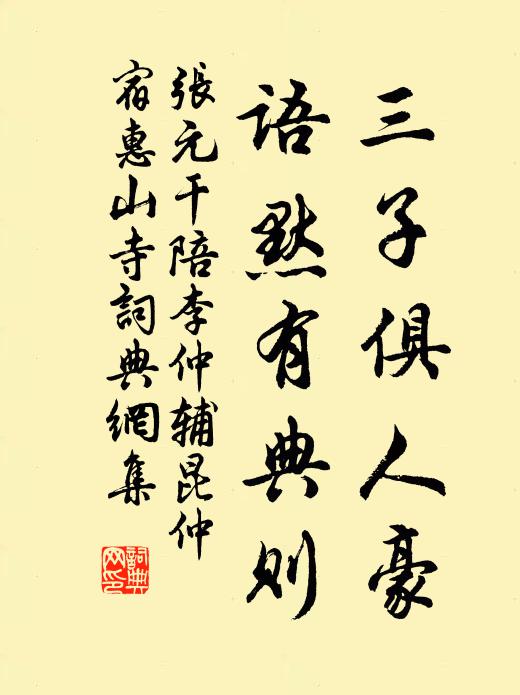 三子俱人豪
語默有典则
張元干陪李仲辅昆仲
宿惠山寺詞典網集
詞典网印